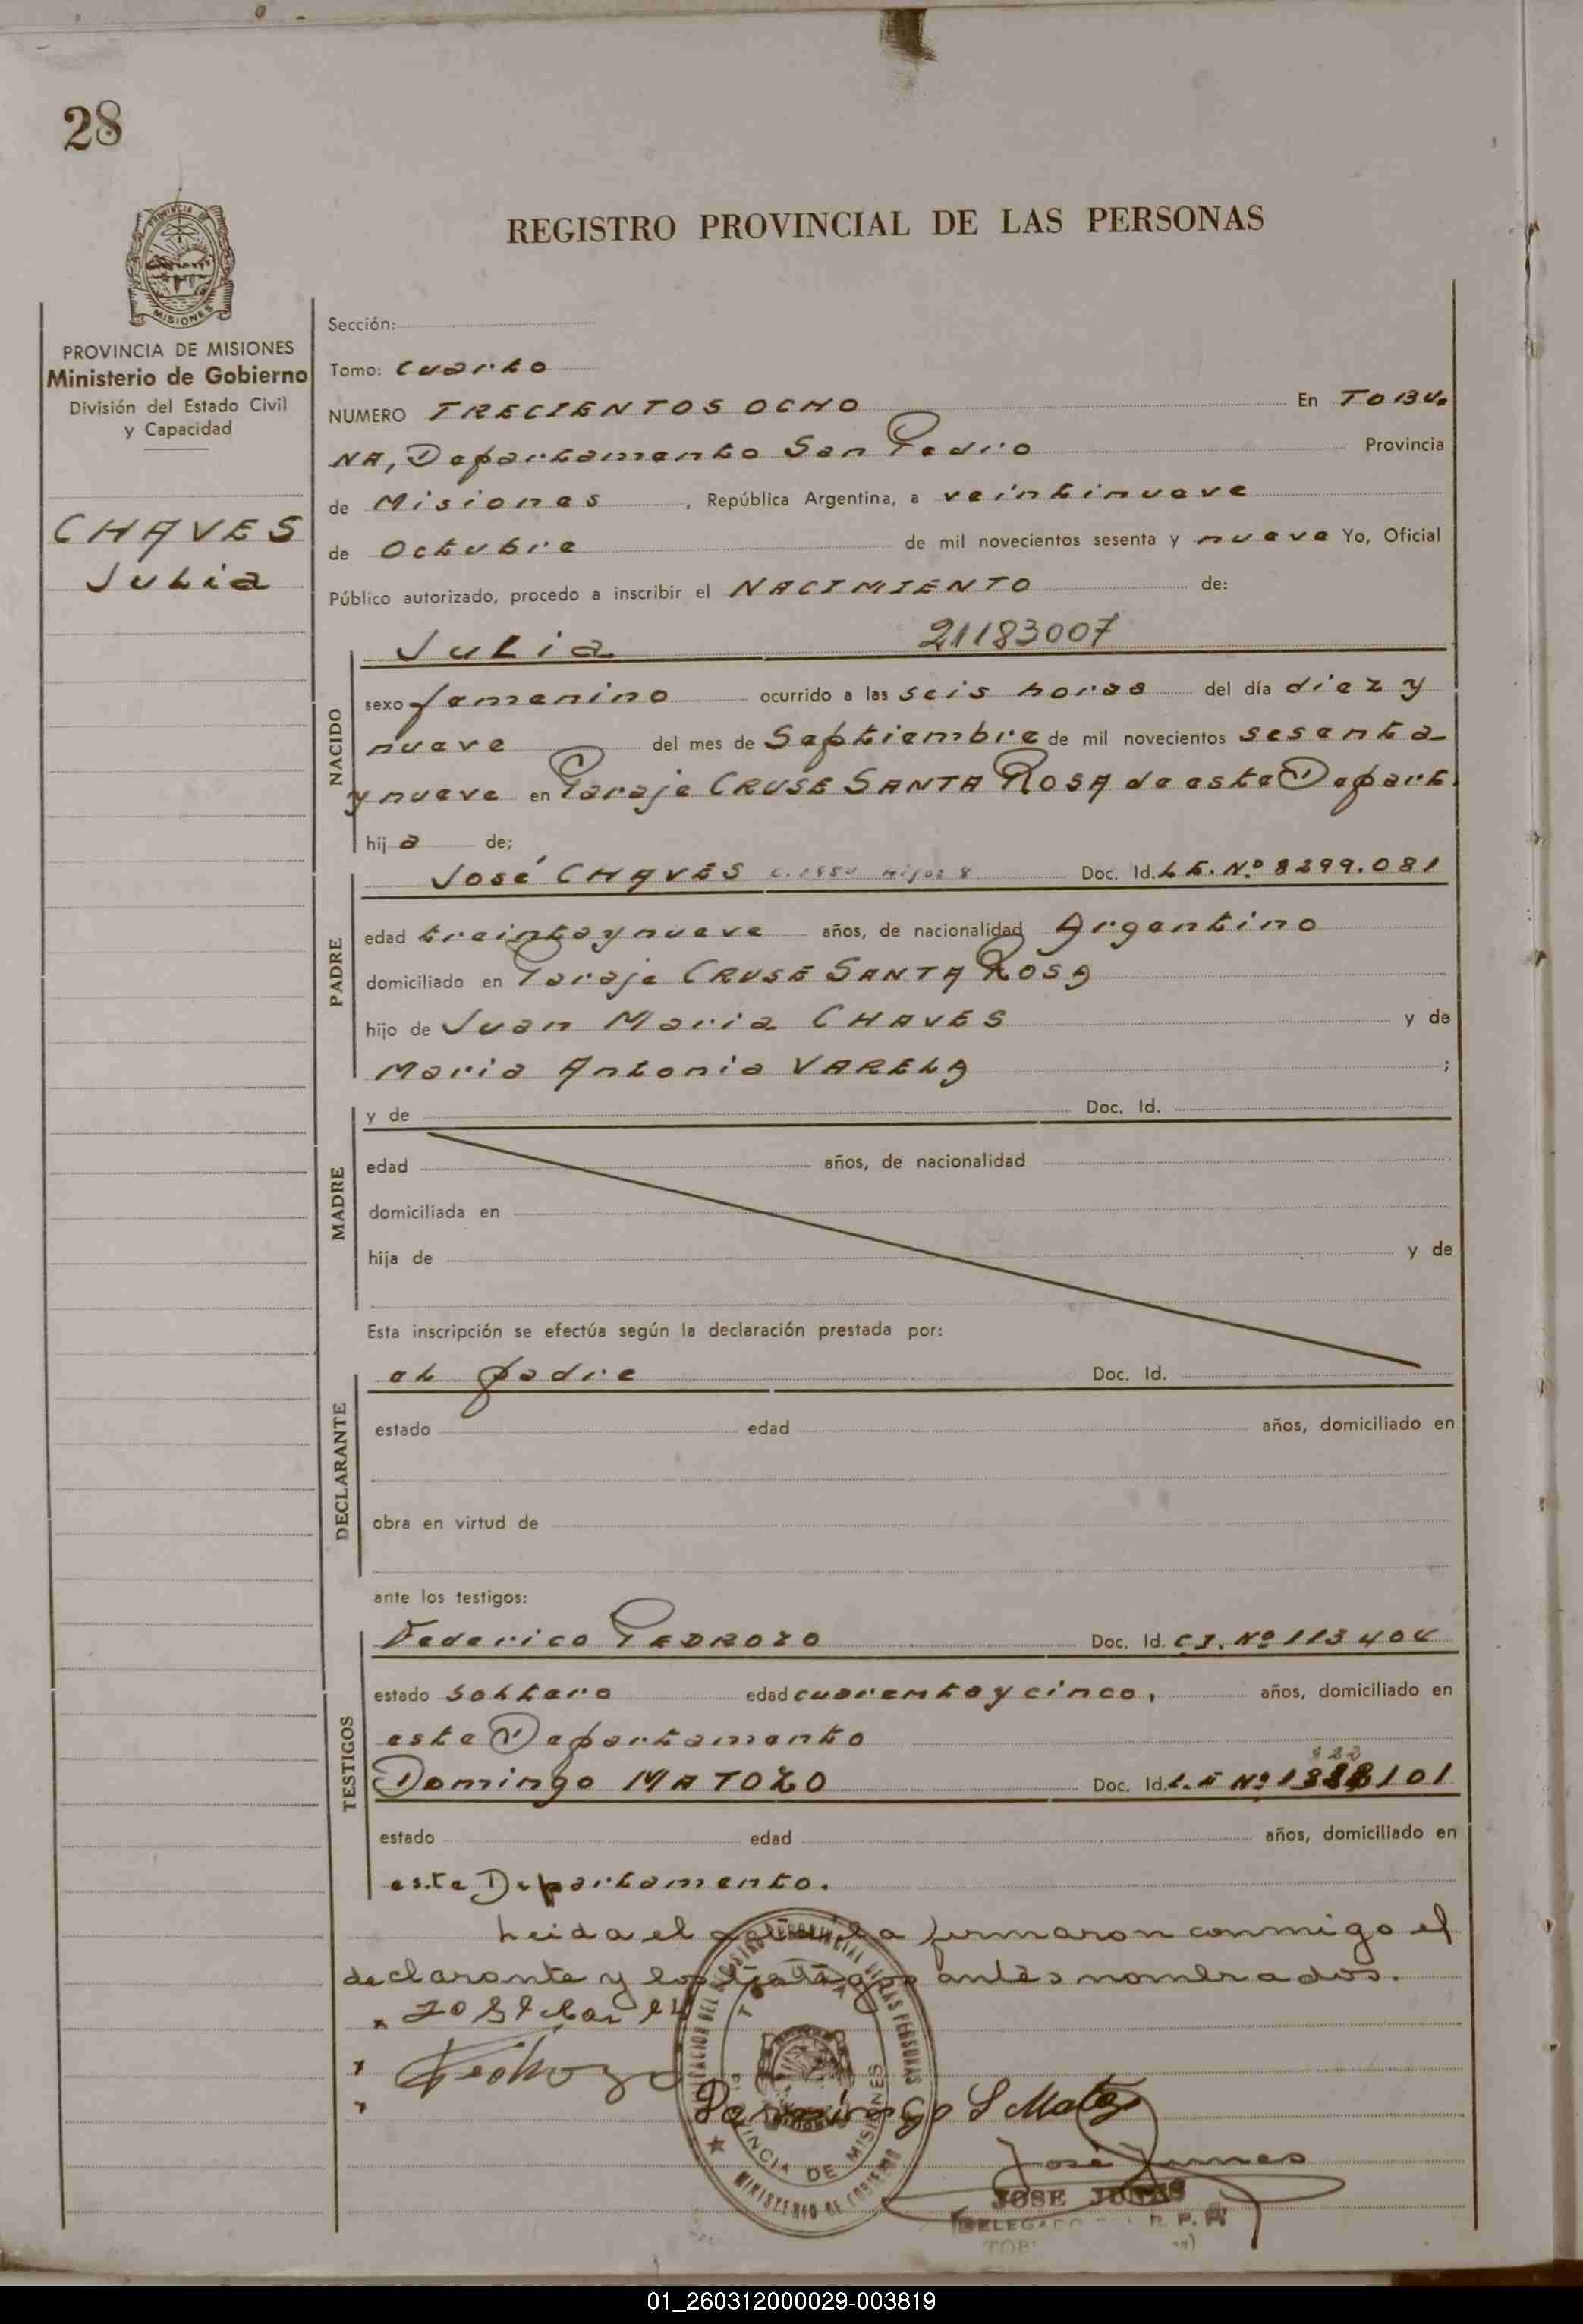 28
REGISTRO PROVINCIAL DE LAS PERSONAS
MISIONES
PROVINCIA DE MISIONES
Ministerio de Gobierno
División del Estado Civil
y Capacidad
CHAVES
Julia
Sección:
Tomo: Cuarto
NUMERO TRECIENTOS OCHO En TOBU-
NA, Departamento San Pedro Provincia
de Misiones, República Argentina, a veintinueve
de Octubre de mil novecientos sesenta y nueve Yo, Oficial
Público autorizado, procedo a inscribir el NACIMIENTO de:
Julia 21183007
NACIDO
sexo femenino ocurrido a las seis horas del día diez y
nueve del mes de Septiembre de mil novecientos sesenta
y nueve en Paraje CRUSE SANTA ROSA de este Depart.
hija de;
José CHAVES Doc. Id. L.E. Nº 8299.081
PADRE
edad treinta y nueve años, de nacionalidad Argentino
domiciliado en Paraje CRUSE SANTA ROSA
hijo de Juan Maria CHAVES y de
Maria Antonia VARELA ;
y de Doc. Id.
MADRE
edad años, de nacionalidad
domiciliada en
hija de y de
Esta inscripción se efectúa según la declaración prestada por:
el padre Doc. Id.
DECLARANTE
estado edad años, domiciliado en
obra en virtud de
ante los testigos:
Federico PEDROZO Doc. Id. C.I. Nº 113404
TESTIGOS
estado soltero edad cuarenta y cinco, años, domiciliado en
este Departamento
Domingo MATOZO Doc. Id. L.E Nº
estado edad años, domiciliado en
este Departamento.
Leida el acta la firmaron conmigo el
declarante y los testigos antes nombrados.
Pedrozo
Domingo S Matozo
PROVINCIA DE MISIONES
MINISTERIO DE GOBIERNO
José Junes
JOSE JUNES
DELEGADO R. P. P.
01_260312000029-003819